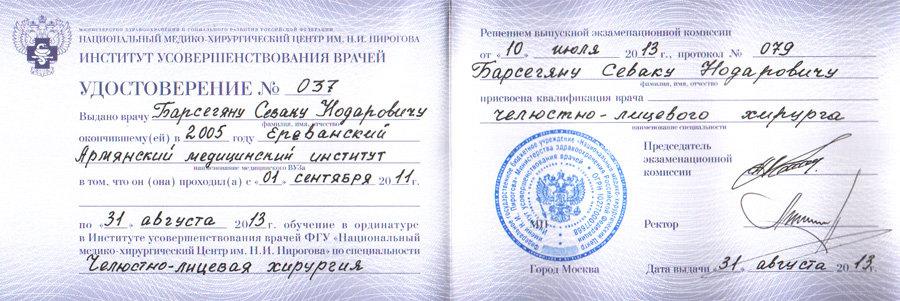 МИНИСТЕРСТВО ЗДРАВООХРАНЕНИЯ И СОЦИАЛЬНОГО РАЗВИТИЯ РОССИЙСКОЙ ФЕДЕРАЦИИ
НАЦИОНАЛЬНЫЙ МЕДИКО-ХИРУРГИЧЕСКИЙ ЦЕНТР ИМ. Н.И. ПИРОГОВА
ИНСТИТУТ УСОВЕРШЕНСТВОВАНИЯ ВРАЧЕЙ
УДОСТОВЕРЕНИЕ № 037
Выдано врачу Барсегяну Севаку Нодаровичу
фамилия, имя, отчество
окончившему(ей) в 2005 году Ереванский
Армянский медицинский институт
наименование медицинского ВУЗа
в том, что он (она) проходил(а) с «01» сентября 2011г.
по «31» августа 2013г. обучение в ординатуре
в Институте усовершенствования врачей ФГУ «Национальный
медико-хирургический Центр им. Н.И. Пирогова» по специальности
Челюстно-лицевая хирургия
Решением выпускной экзаменационной комиссии
от «10» июля 2013г., протокол № 079
Барсегяну Севаку Нодаровичу
фамилия, имя, отчество
присвоена квалификация врача
челюстно-лицевого хирурга
наименование специальности
Председатель
экзаменационной
комиссии
МП
Ректор
Город Москва
Дата выдачи «31» августа 2013г.